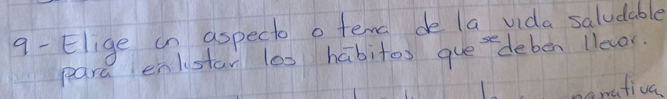 9- Elige un aspecto o tema de la vida saludable
para enlistar los hábitos que se deben llevar.
narrativa